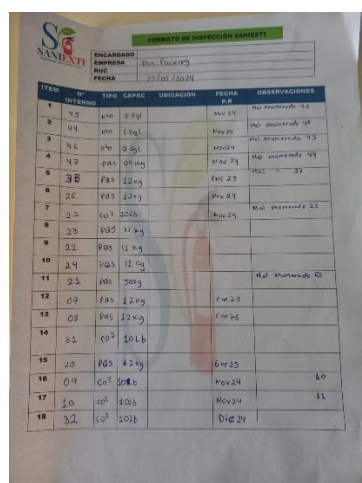 SANIEXTI
FORMATO DE INSPECCIÓN SANIEXTI
ENCARGADO
EMPRESA Don Packing
RUC
FECHA 23/05/2024
ITEM N° INTERNO TIPO CAPAC UBICACIÓN FECHA P.R OBSERVACIONES
1 45 H²O 2.5gl Nov 24 Mal enumerado 42
2 44 H²O 2.5gl Nov 24 Mal enumerado 48
3 46 H²O 2.5gl Nov 24 Mal enumerado 43
4 47 PQS 09 kg Nov 24 Mal enumerado 49
5 38 PQS 12 kg Ene 25 Mal " 37
6 26 PQS 12 kg Nov 24
7 27 CO² 10Lb Nov 24 Mal enumerado 25
8 23 PQS 12 kg
9 22 PQS 12 kg
10 24 PQS 12 kg
11 21 PQS 50kg Mal enumerado
12 07 PQS 12 kg Ene 25
13 03 PQS 12 kg Ene 25
14 31 CO² 10Lb
15 25 PQS 12 kg Ene 25
16 09 CO² 10Lb Nov 24 10
17 10 CO² 10Lb Nov 24 11
18 32 CO² 10Lb Dic 24